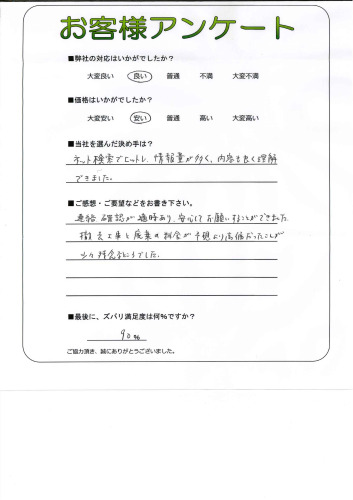 お客様アンケート
■弊社の対応はいかがでしたか？
大変良い 良い 普通 不満 大変不満
■価格はいかがでしたか？
大変安い 安い 普通 高い 大変高い
■当社を選んだ決め手は？
ネット検索でヒットし、情報量が多く、内容も良く理解
できました。
■ご感想・ご要望などをお書き下さい。
連絡、確認が適時あり、安心してお願いすることができました。
撤去工事と廃棄の料金が予想より高価だったことが
少々残念なところでした。
■最後に、ズバリ満足度は何%ですか？
90%
ご協力頂き、誠にありがとうございました。